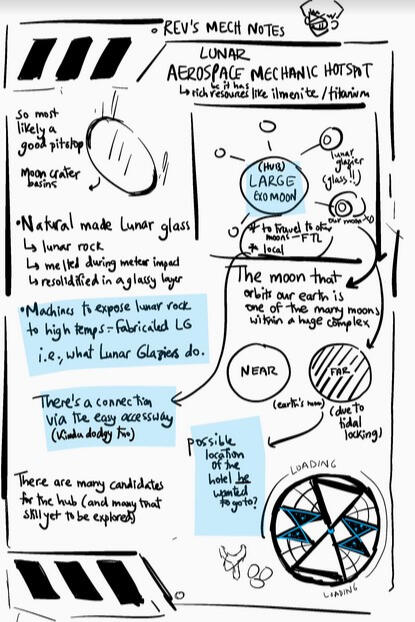 • REV'S MECH NOTES
LUNAR
AEROSPACE MECHANIC HOTSPOT
↳ bc it has rich resources like ilmenite / titanium
So most
likely a
good pitstop
Moon crater
basins
(HUB)
LARGE
EXOMOON
lunar
glazier
(glass!!)
our moon
* to travel to
moons - FTL
* local
• Natural made Lunar glass
↳ lunar rock
↳ melted during meteor impact
↳ resolidified in a glassy layer
The moon that
orbits our earth is
one of the many moons
within a huge complex
• Machines to expose lunar rock
to high temps - Fabricated LG
i.e., what Lunar Glaziers do.
NEAR
FAR
(earth's view)
(due to
tidal
locking)
There's a connection
via the easy accessway
(Kinda dodgy tho)
possible
location
of the
hotel he
wanted
to go to?
There are many candidates
for the hub (and many that
still yet to be explored)
LOADING
LOADING